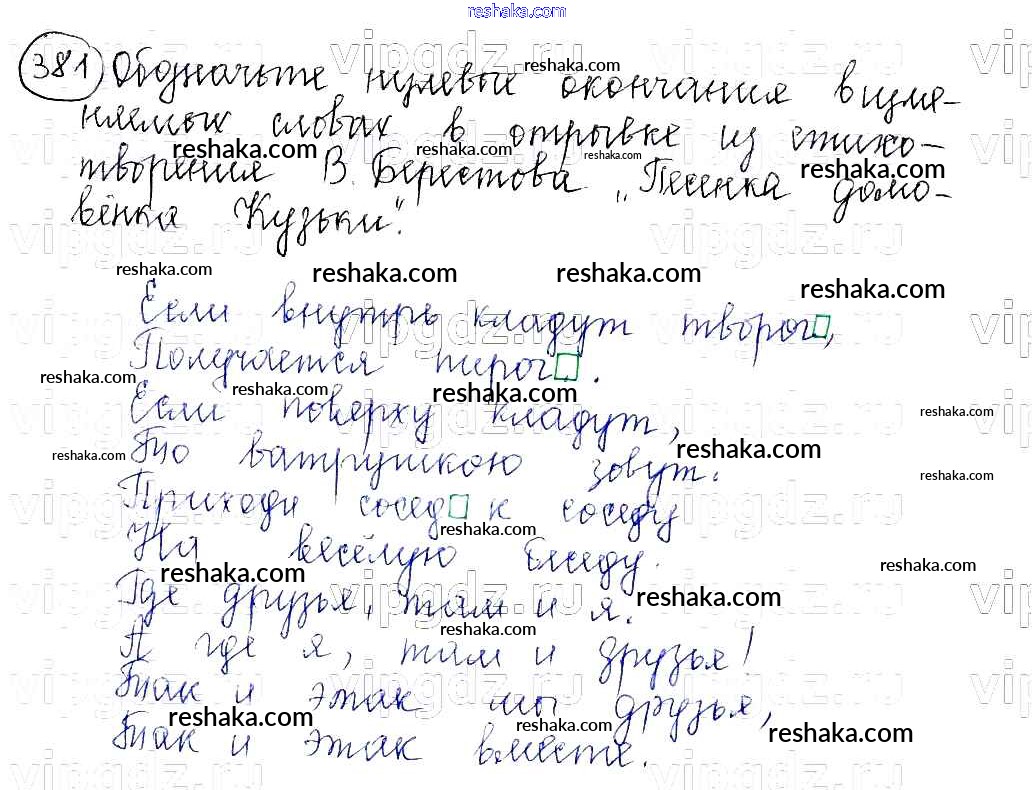 reshaka.com
381 Обозначьте нулевые окончания в изме-
няемых словах в отрывке из стихо-
творения В. Берестова „Песенка домо-
вёнка Кузьки".
Если внутрь кладут творог,
Получается пирог.
Если поверху кладут,
То ватрушкою зовут.
Приходи сосед к соседу
На весёлую беседу.
Где друзья, там и я.
А где я, там и друзья!
Так и этак мы друзья,
Так и этак вместе.